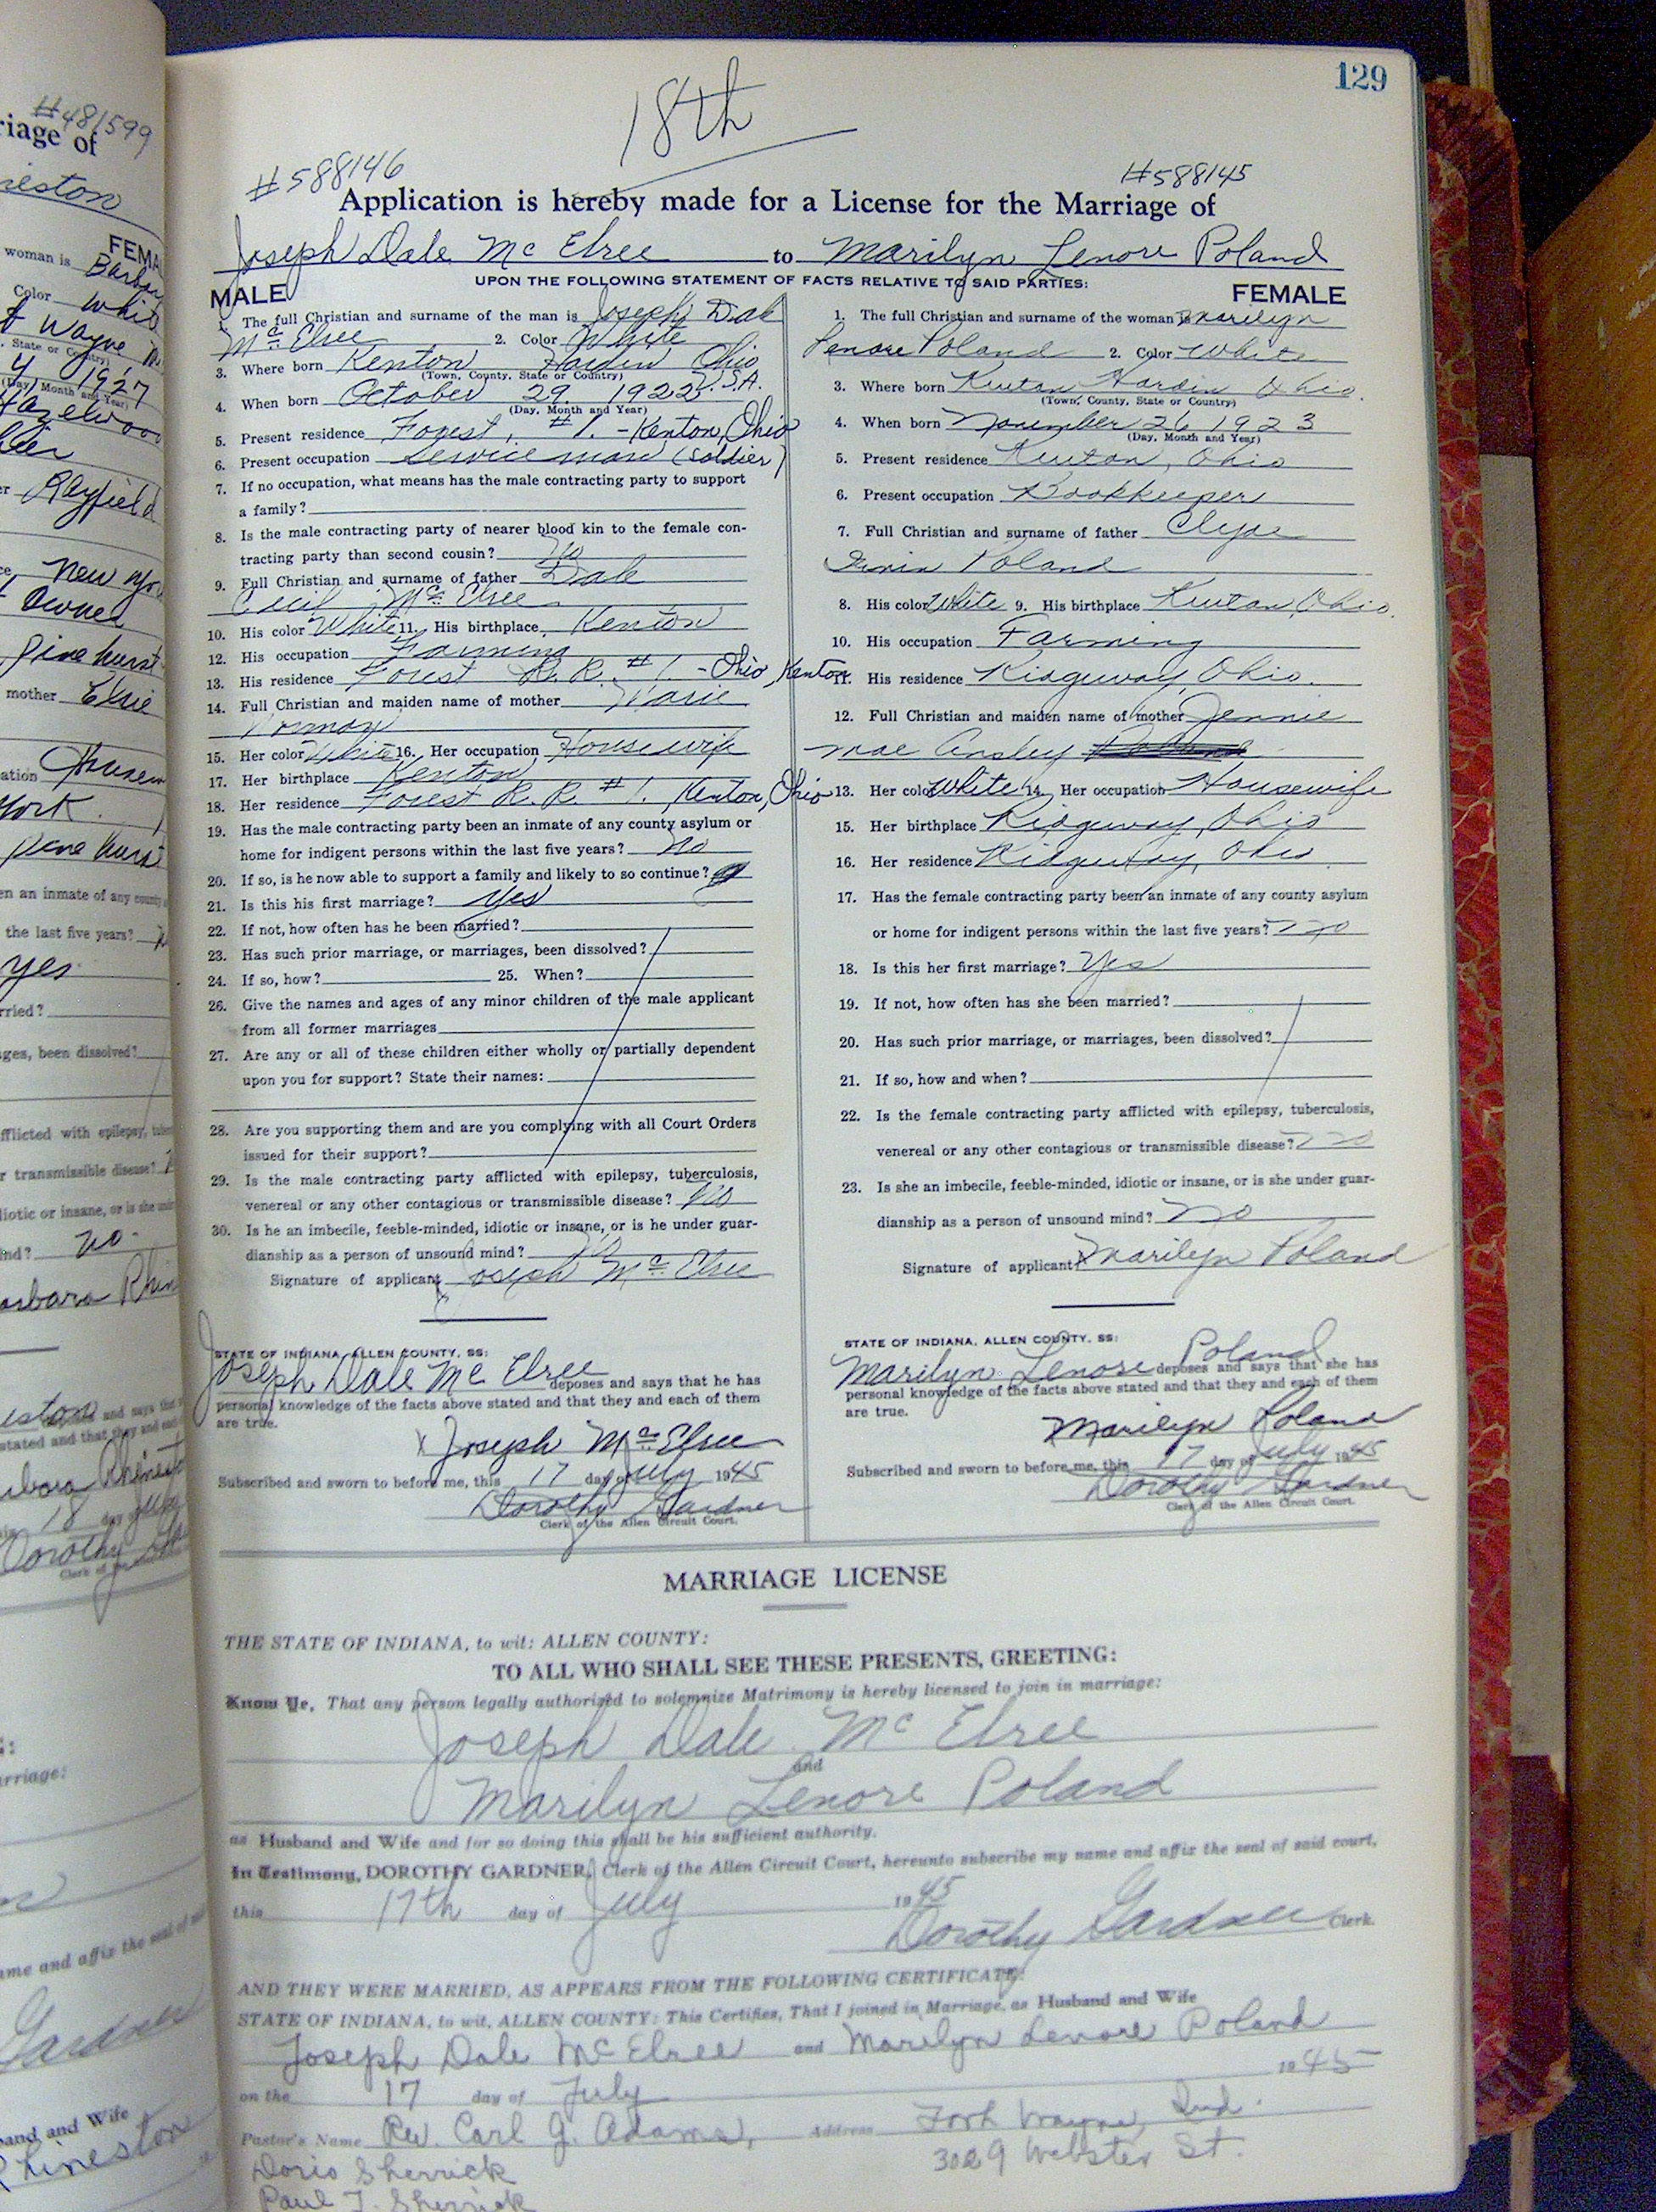 129
18th
#588146 #588145
Application is hereby made for a License for the Marriage of
Joseph Dale Mc Elree to Marilyn Lenore Poland
UPON THE FOLLOWING STATEMENT OF FACTS RELATIVE TO SAID PARTIES:
MALE
1. The full Christian and surname of the man is Joseph Dale
Mc Elree 2. Color White
3. Where born Kenton Hardin Ohio
(Town, County, State or Country) U.S.A.
4. When born October 29. 1922
(Day, Month and Year)
5. Present residence Forest, #1. - Kenton, Ohio
6. Present occupation Service man (Soldier)
7. If no occupation, what means has the male contracting party to support
a family?
8. Is the male contracting party of nearer blood kin to the female con-
tracting party than second cousin? No
9. Full Christian and surname of father Dale
Cecil Mc Elree
10. His color White 11. His birthplace Kenton
12. His occupation Farming
13. His residence Forest R. R. #1. - Ohio, Kenton
14. Full Christian and maiden name of mother Marie
15. Her color White 16. Her occupation Housewife
17. Her birthplace Kenton
18. Her residence Forest R. R. #1. Kenton, Ohio
19. Has the male contracting party been an inmate of any county asylum or
home for indigent persons within the last five years? No
20. If so, is he now able to support a family and likely to so continue?
21. Is this his first marriage? Yes
22. If not, how often has he been married?
23. Has such prior marriage, or marriages, been dissolved?
24. If so, how? 25. When?
26. Give the names and ages of any minor children of the male applicant
from all former marriages
27. Are any or all of these children either wholly or partially dependent
upon you for support? State their names:
28. Are you supporting them and are you complying with all Court Orders
issued for their support?
29. Is the male contracting party afflicted with epilepsy, tuberculosis,
venereal or any other contagious or transmissible disease? No
30. Is he an imbecile, feeble-minded, idiotic or insane, or is he under guar-
dianship as a person of unsound mind? No
Signature of applicant Joseph Mc Elree
STATE OF INDIANA, ALLEN COUNTY, SS:
Joseph Dale Mc Elree deposes and says that he has
personal knowledge of the facts above stated and that they and each of them
are true.
X Joseph Mc Elree
Subscribed and sworn to before me, this 17 day of July 1945
Dorothy Gardner
Clerk of the Allen Circuit Court.
FEMALE
1. The full Christian and surname of the woman is Marilyn
Lenore Poland 2. Color White
3. Where born Kenton Hardin Ohio
(Town, County, State or Country)
4. When born November 26 1923
(Day, Month and Year)
5. Present residence Kenton, Ohio
6. Present occupation Bookkeeper
7. Full Christian and surname of father Clyde
Poland
8. His color White 9. His birthplace Kenton, Ohio
10. His occupation Farming
11. His residence Ridgeway, Ohio.
12. Full Christian and maiden name of mother Jennie
Mae Ansley
13. Her color White 14. Her occupation Housewife
15. Her birthplace Ridgeway, Ohio
16. Her residence Ridgeway, Ohio
17. Has the female contracting party been an inmate of any county asylum
or home for indigent persons within the last five years? No
18. Is this her first marriage? Yes
19. If not, how often has she been married?
20. Has such prior marriage, or marriages, been dissolved?
21. If so, how and when?
22. Is the female contracting party afflicted with epilepsy, tuberculosis,
venereal or any other contagious or transmissible disease? No
23. Is she an imbecile, feeble-minded, idiotic or insane, or is she under guar-
dianship as a person of unsound mind? No
Signature of applicant X Marilyn Poland
STATE OF INDIANA, ALLEN COUNTY, SS:
Marilyn Lenore Poland deposes and says that she has
personal knowledge of the facts above stated and that they and each of them
are true.
Marilyn Poland
Subscribed and sworn to before me, this 17 day of July 1945
Dorothy Gardner
Clerk of the Allen Circuit Court.
MARRIAGE LICENSE
THE STATE OF INDIANA, to wit: ALLEN COUNTY:
TO ALL WHO SHALL SEE THESE PRESENTS, GREETING:
Know Ye, That any person legally authorized to solemnize Matrimony is hereby licensed to join in marriage:
Joseph Dale Mc Elree
and
Marilyn Lenore Poland
as Husband and Wife and for so doing this shall be his sufficient authority.
In Testimony, DOROTHY GARDNER, Clerk of the Allen Circuit Court, hereunto subscribe my name and affix the seal of said court,
this 17th day of July 1945
Dorothy Gardner Clerk.
AND THEY WERE MARRIED, AS APPEARS FROM THE FOLLOWING CERTIFICATE:
STATE OF INDIANA, to wit, ALLEN COUNTY: This Certifies, That I joined in Marriage, as Husband and Wife
Joseph Dale McElree and Marilyn Lenore Poland
on the 17 day of July 1945
Pastor's Name Rev. Carl G. Adams, Address Fort Wayne, Ind.
3029 Webster St.
Doris Sherrick
Paul T. Sherrick